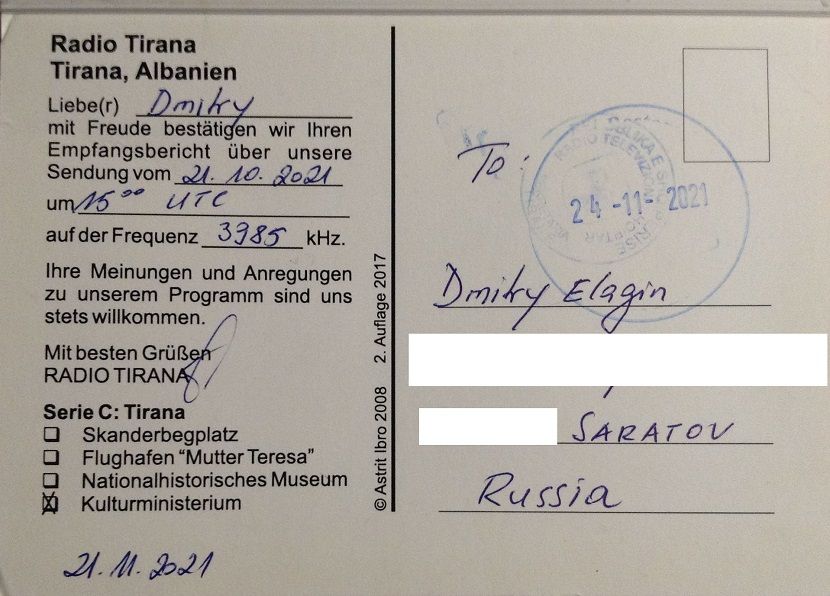 Radio Tirana
Tirana, Albanien
Liebe(r) Dmitry
mit Freude bestätigen wir Ihren
Empfangsbericht über unsere
Sendung vom 21.10.2021
um 15⁰⁰ UTC
auf der Frequenz 3985 kHz.
Ihre Meinungen und Anregungen
zu unserem Programm sind uns
stets willkommen.
Mit besten Grüßen
RADIO TIRANA
Serie C: Tirana
Skanderbegplatz
Flughafen “Mutter Teresa”
Nationalhistorisches Museum
Kulturministerium
21.11.2021
© Astrit Ibro 2008 2. Auflage 2017
To:
RADIO TELEVIZIONI
24 -11- 2021
Dmitry Elagin
SARATOV
Russia